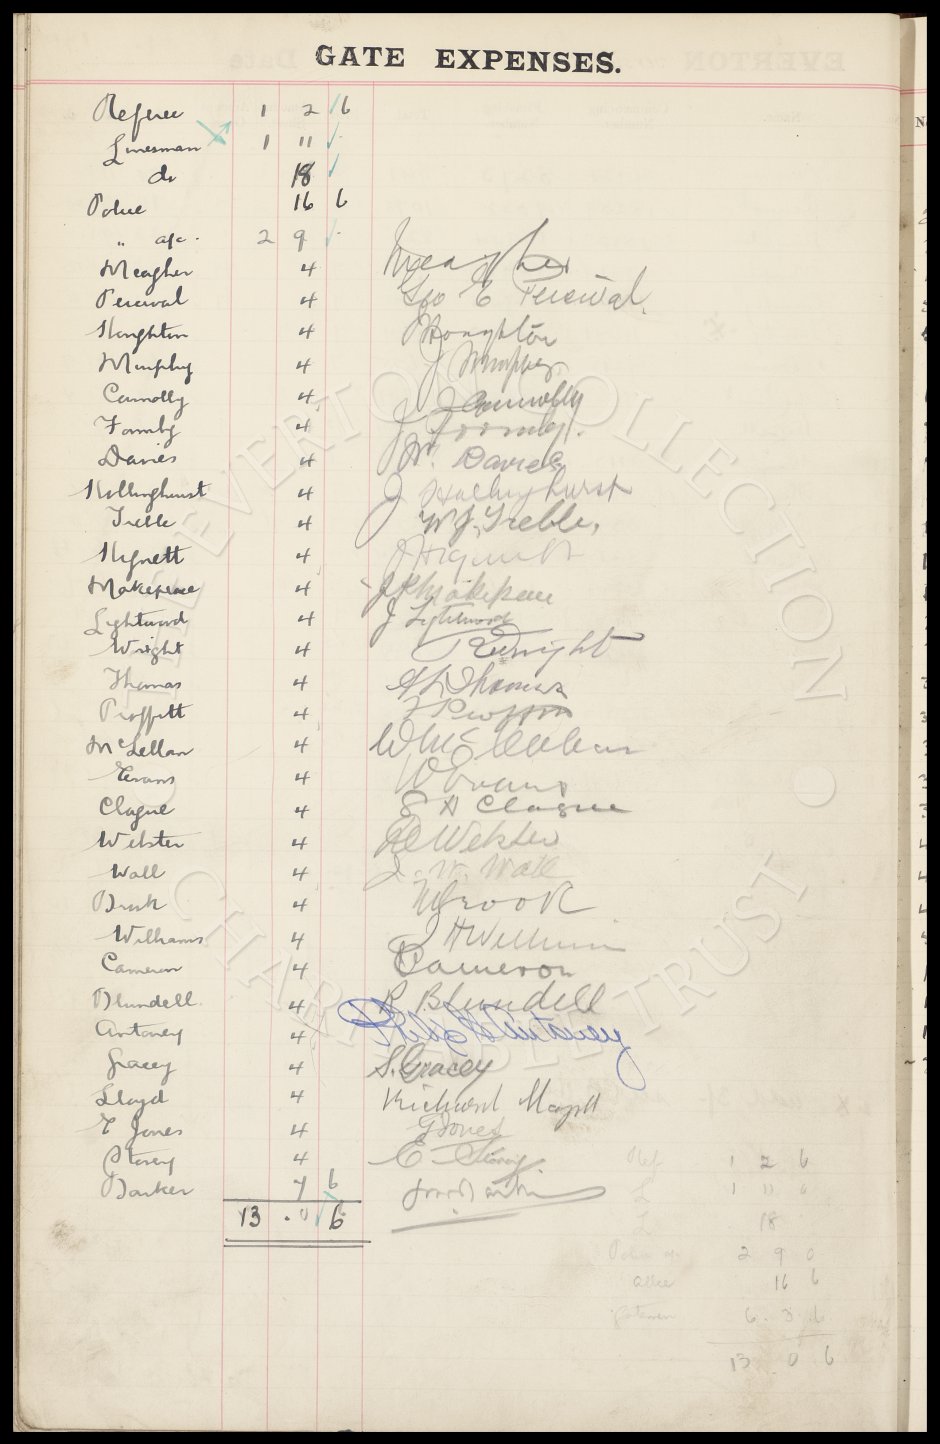 GATE EXPENSES.
Referee 1 2 6
Linesman 1 11
do 18
Police 16 6
" a/c. 2 9
Meagher 4 Meagher
Percival 4 Geo E Percival.
Houghton 4 Houghton
Murphy 4 J Murphy.
Connolly 4 J Connolly
Formby 4 J Formby.
Davies 4 W. Davies
Hollinghurst 4 J Hollinghurst
Treble 4 W J Treble.
Hignett 4 J Hignett
Makepeace 4 J Makepeace
Lightwood 4 J Lightwood
Wright 4 R Wright
Thomas 4 Thomas
Proffitt 4 Proffitt
McLellan 4 W McLellan
Evans 4 W Evans
Clague 4 E H Clague
Webster 4 Webster
Wall 4 J. W. Wall
Brook 4 Brook
Williams 4 J H Williams
Cameron 4 Cameron
Blundell 4 R Blundell
Antoney 4 Antoney
Gracey 4 S. Gracey
Lloyd 4 Richard
E Jones 4 Jones
Storey 4 E Storey.
Barker 7 6
13 . 0 6
Ref 1 2 6
L 1 11 0
L 18
Police a/c 2 9 0
16 6
Gatemen 6 . 3 . 6
13 0 6
EVERTON COLLECTION
CHARITABLE TRUST